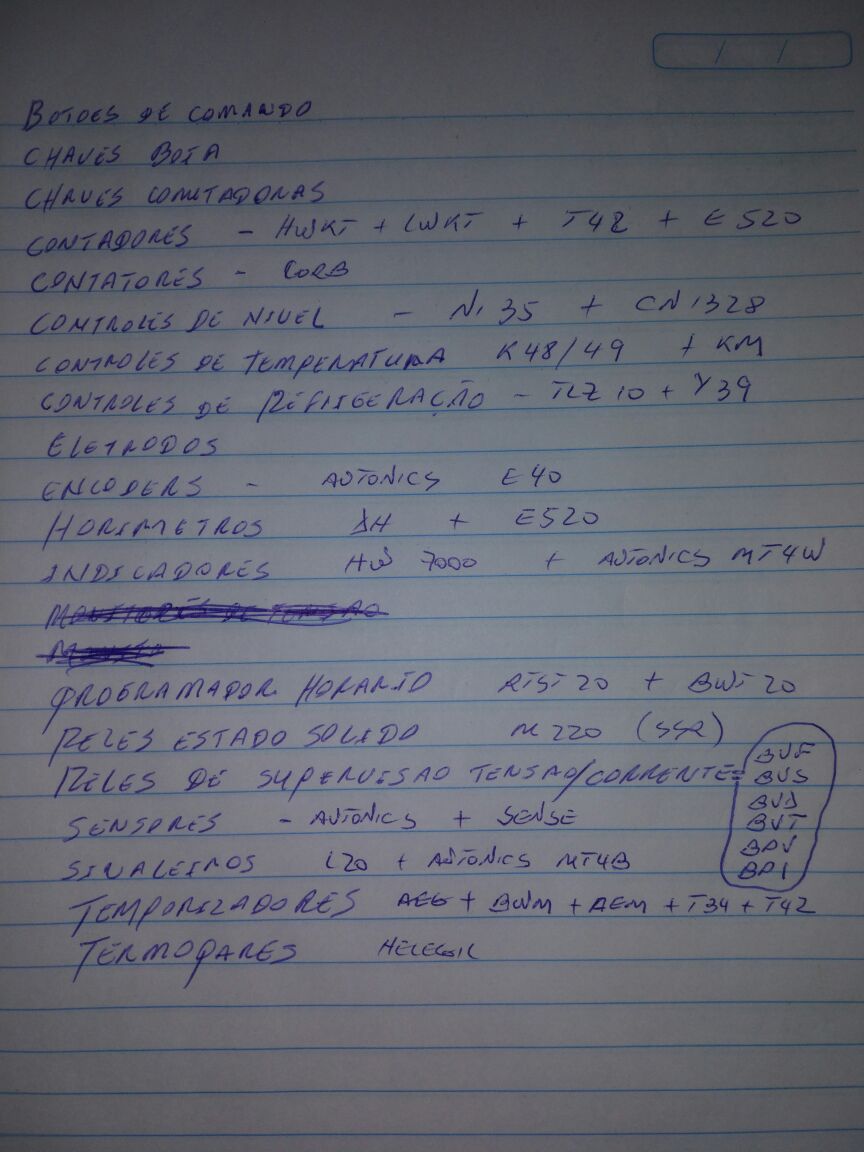 BOTOES DE COMANDO
CHAVES BOIA
CHAVES COMUTADORAS
CONTADORES - HWKT + LWKT + T42 + E520
CONTATORES -
CONTROLES DE NIVEL - Ni 35 + CNi 328
CONTROLES DE TEMPERATURA K48/49 + KM
CONTROLES DE REFIGERAÇÃO - TLZ 10 + Y39
ELETRODOS
ENCODERS - AUTONICS E40
HORIMETROS + E520
INDICADORES HW 7000 + AUTONICS MT4W
PROGRAMADOR HORARIO RTST 20 + BWT 20
RELES ESTADO SOLIDO M220 (SSR)
RELES DE SUPERVISAO TENSAO/CORRENTE=
BVF
BVS
BVD
BVT
BPV
BPI
SENSORES - AUTONICS + SENSE
SINALEIROS L20 + AUTONICS MT4B
TEMPORIZADORES AEG + BWM + AEM + T34 + T42
TERMOPARES